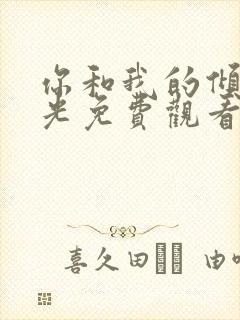 你和我的傾
光免費觀看
喜久田 由